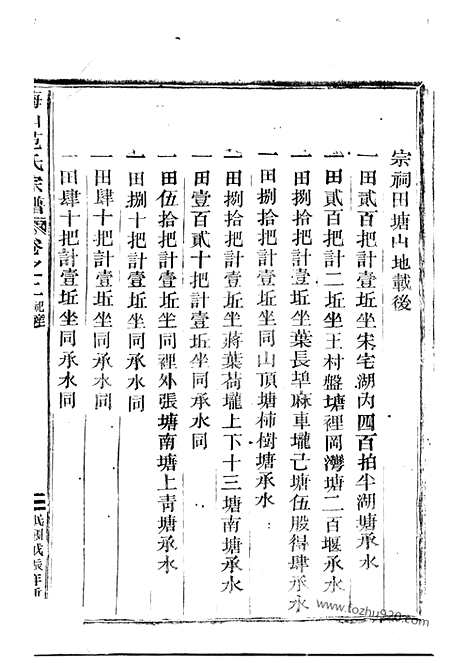 宗祠田塘山地載後
一田貳百把計壹坵坐宋宅湖內四百拍半湖塘承水
一田貳百把計二坵坐王村盤塘裡岡灣塘二百堰承水
一田捌拾把計壹坵坐葉長埠麻車壠己塘伍股得肆承水
一田捌拾把計壹坵坐同山頂塘柿樹塘承水
一田捌拾把計壹坵坐蔣葉荷壠上下十三塘南塘承水
一田壹百貳十把計壹坵坐同承水同
一田伍拾把計壹坵坐同裡外張塘南塘上青塘承水
一田捌十把計壹坵坐同承水同
一田肆十把計壹坵坐同承水同
一田肆十把計壹坵坐同承水同
范氏宗譜 卷之二
www.tozhu920.com